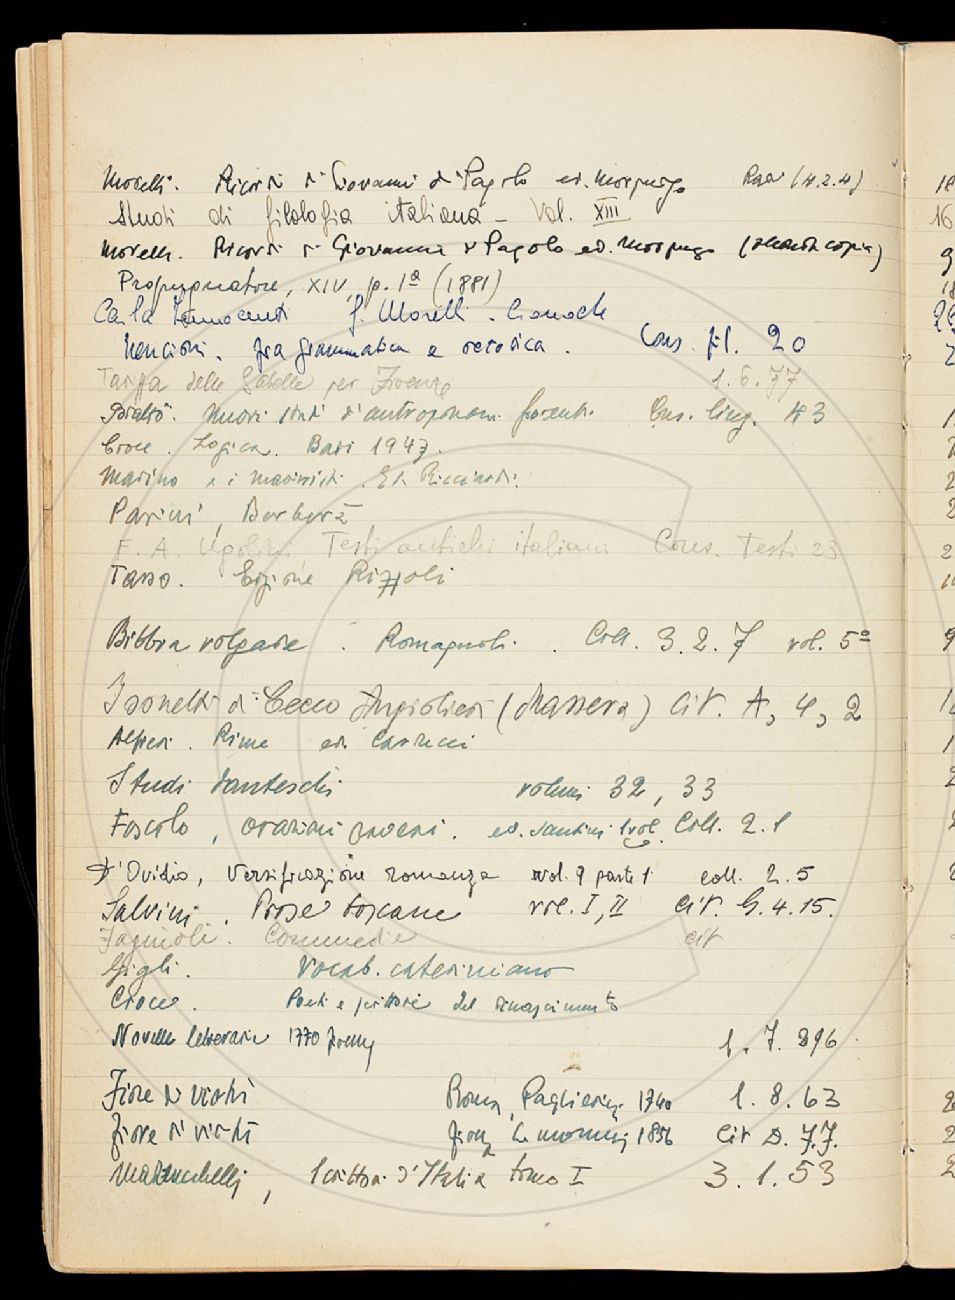 Morelli. Ricordi di Giovanni di Pagolo ed. Morpurgo Rari (4.2.4)
Studi di filologia italiana - Vol. XIII
Morelli. Ricordi di Giovanni di Pagolo ed. Morpurgo (seconda copia)
Propugnatore, XIV, p. 1ª (1881)
Carla Innocenti G. Morelli. Cronache
Nencioni. fra grammatica e retorica. Cons. fil. 20
Tariffa delle Gabelle per Firenze 1.6.77
Nuovi studi d'antroponom. fiorent. Cons. ling. 43
Croce. Logica. Bari 1947.
Marino e i marinisti. Ed. Ricciardi.
Parini, Barberà
F. A. Ugolini Testi antichi italiani Cons. Testi 23
Tasso. Edizione Rizzoli
Bibbia volgare. Romagnoli. Coll. 3.2.7 vol. 5º
I sonetti di Cecco Angiolieri (Massera) Cit. A, 4, 2
Alfieri. Rime ed. Carducci
Studi danteschi volumi 32, 33
Foscolo, orazioni pavesi. ed. Santini 1 vol. Coll. 2.1
D'Ovidio, Versificazione romanza vol. 9 parte 1 coll. 2.5
Salvini. Prose toscane vol. I, II Cit. G.4.15.
Fagiuoli. Commedie cit
Gigli. Vocab. cateriniano
Croce. Poeti e scrittori del rinascimento
Novelle letterarie 1770 1.7.896
Fiore di virtù Roma, Pagliarini 1740 1.8.63
Fiore di virtù Firenze 1856 Cit D.7.7.
Mazzuchelli, Scrittori d'Italia tomo I 3.1.53